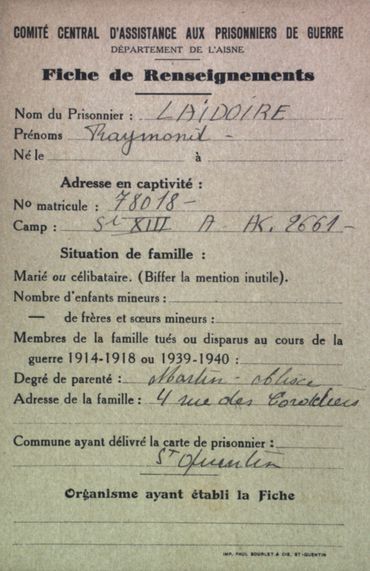 COMITÉ CENTRAL D'ASSISTANCE AUX PRISONNIERS DE GUERRE
DÉPARTEMENT DE L'AISNE
Fiche de Renseignements
Nom du Prisonnier : LAÏDOIRE
Prénoms Raymond -
Né le à
Adresse en captivité :
No matricule : 78018 -
Camp : St XIII A AK. 2661 -
Situation de famille :
Marié ou célibataire. (Biffer la mention inutile).
Nombre d'enfants mineurs :
— de frères et sœurs mineurs :
Membres de la famille tués ou disparus au cours de la
guerre 1914-1918 ou 1939-1940 :
Degré de parenté : Martin -
Adresse de la famille : 4 rue des Cordeliers
Commune ayant délivré la carte de prisonnier :
St Quentin
Organisme ayant établi la Fiche
IMP. PAUL BOURLET & CIE, ST-QUENTIN